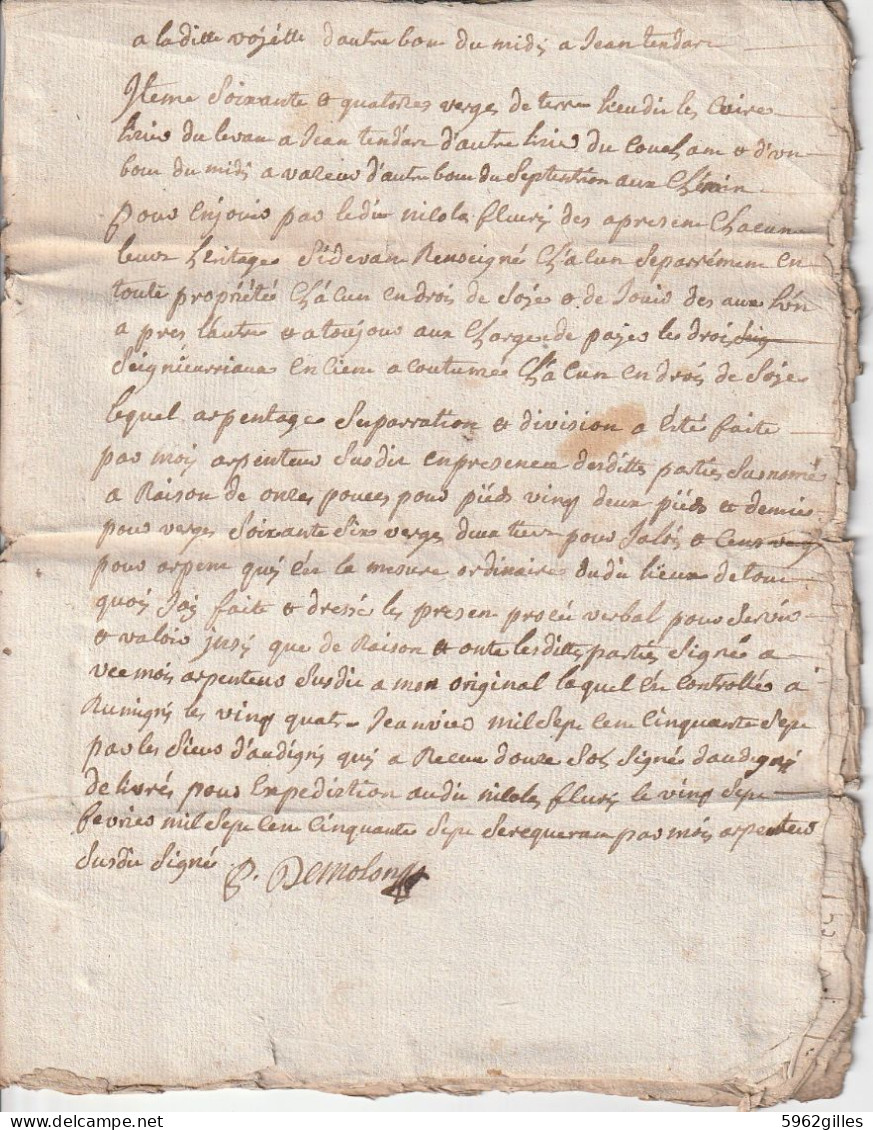 a la ditte voyette d'autre bou du midi a Jean tendart
Iteme Soixante & quatorzes verges de terre lieudit les
lizie du levan a Jean tendart d'autre lizie du Coucham & d'un
bou du midi a valeur d'autre bou du Septention aux Chemin
pour Enjouir par ledit nicola fleury des apresen Chacun
leurs heritages Sidevan Renseigné Chacun Separrémem En
toute propriété Chacun En drois de Soye & de Jouir des aux
a pres l'autre & a toujour aux Charge de payer les drois Seig
Seignieurriaux En Ciene a coutumee Chacun En drois de Soye
lequel arpentages Separration & division a Esté faite
par moi arpenteur Susdit En presence desdittes parties Susnomé
a Raison de onzes pouces pour pieds vingt deux pieds & demie
pour verges Soixante Six verges deux tiers pour Jalois & Cent verg
pour arpent qui Est la mesure ordinaire dudit lieux de tout
quoi Jai faite & dressé les presen procée verbal pour Servir
& valoir jusi que de Raison & onte lesdittes parties Signé a
vec moi arpenteur Susdit a mon original laquel Est Controllée a
Rumigni les vingt quatre Jeanvier mil Sept Cent Cinquante Sept
par les Sieur d'audigni qui a Receu douze Sol Signé daudigni
delivrés pour Expediction audit nicolas fleury le vingt Sept
fevrier mil Sept Cent Cinquante Sept par moi arpenteur
Susdit Signé P. Demolon
5962gilles